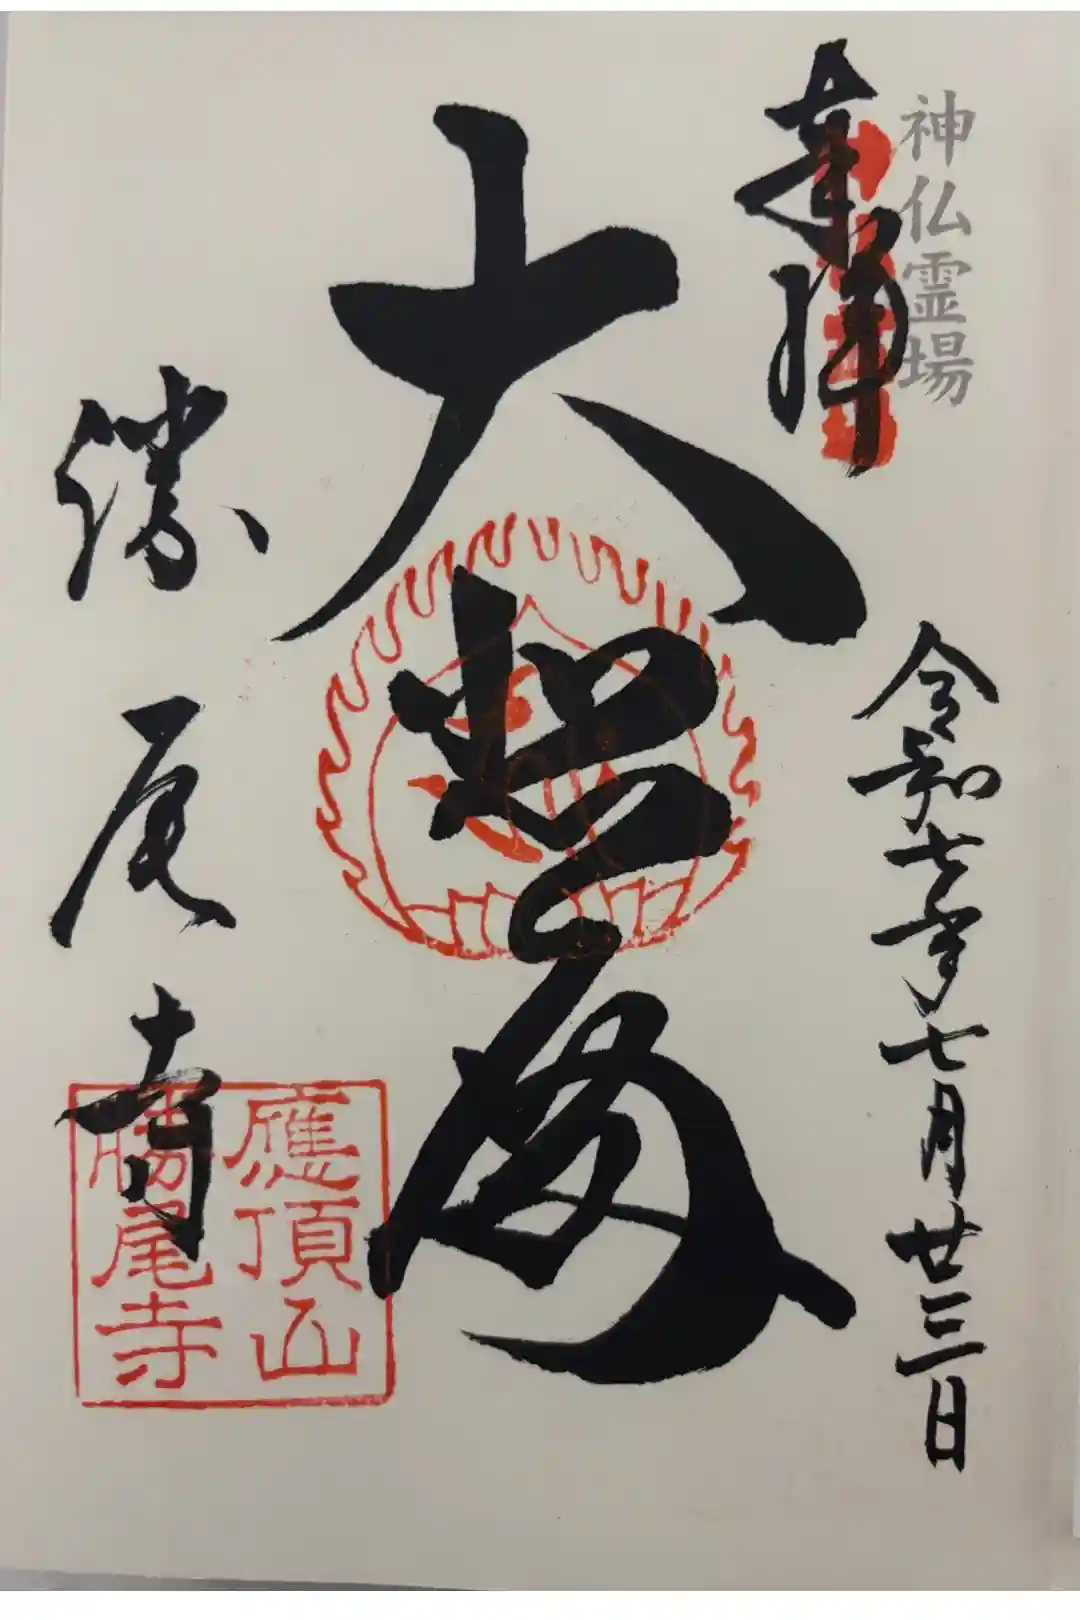 神仏霊場
奉拝
令和七年七月廿三日
大悲殿
勝尾寺
應頂山
勝尾寺